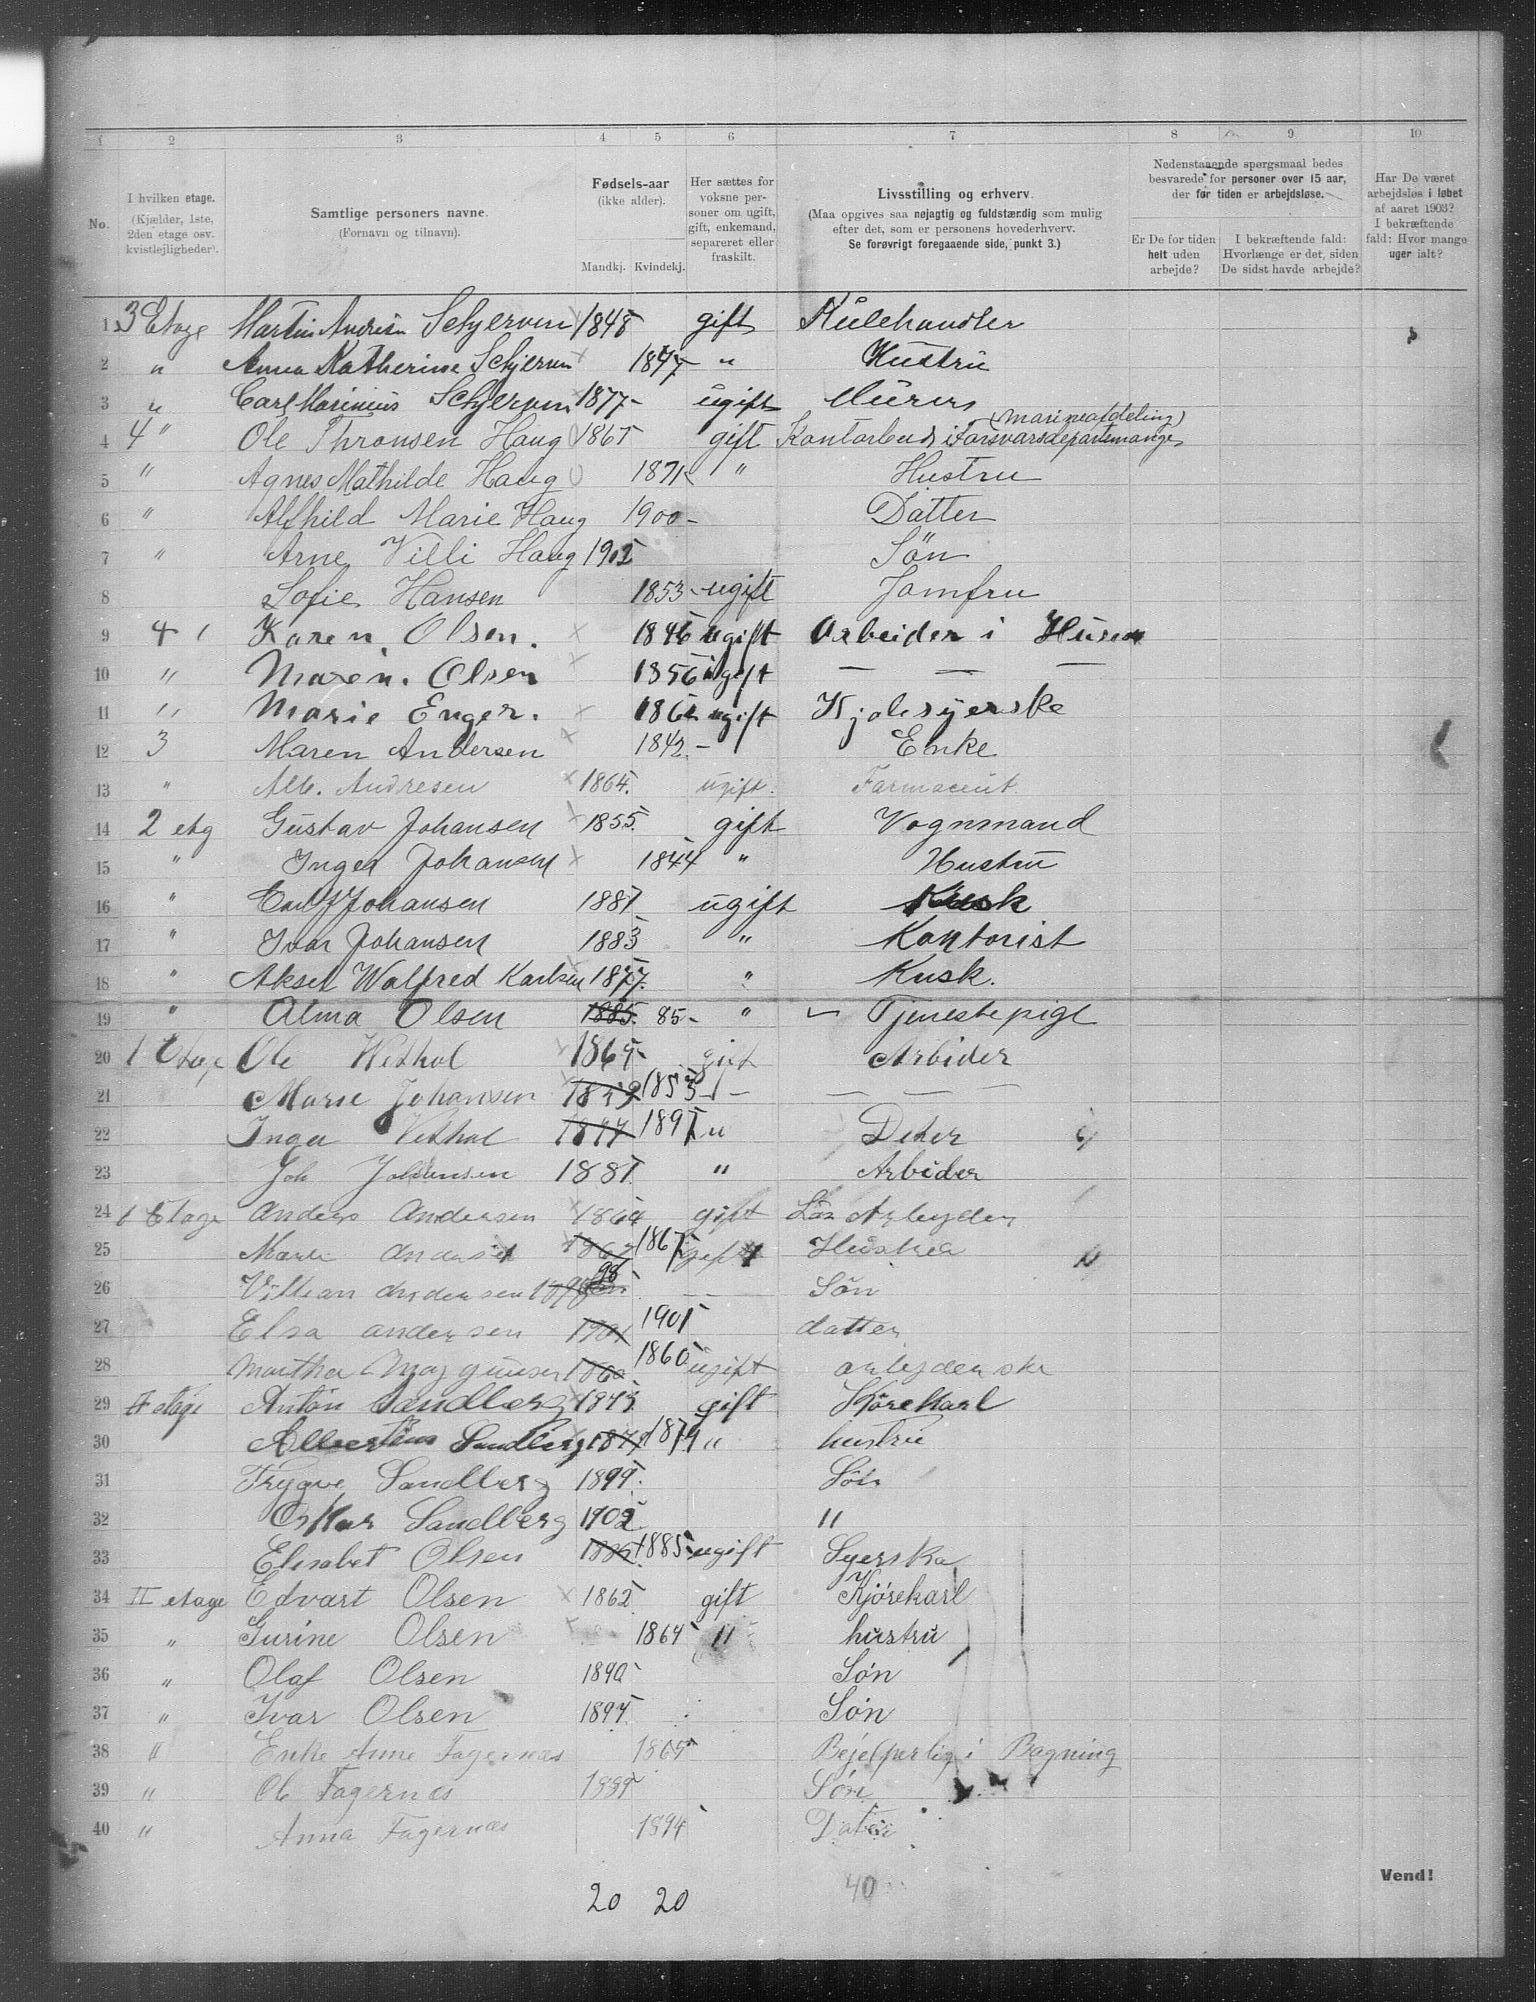 1 2 3 4 5 6 7 8 9 10
No.
I hvilken etage.
(Kjælder, 1ste,
2den etage osv.
kvistleiligheder).
Samtlige personers navne.
(Fornavn og tilnavn).
Fødsels-aar
(ikke alder).
Mandkj. Kvindekj.
Her sættes for
voksne per-
soner om ugift,
gift, enkemand,
separeret eller
fraskilt.
Livsstilling og erhverv.
(Maa opgives saa nøjagtig og fuldstændig som mulig
efter det, som er personens hovederhverv.
Se forøvrigt foregaaende side, punkt 3.)
Nedenstaaende spørgsmaal bedes
besvarede for personer over 15 aar,
der før tiden er arbejdsløse.
Er De for tiden
helt uden
arbejde?
I bekræftende fald:
Hvorlænge er det, siden
De sidst havde arbejde?
Har De været
arbejdsløs i løbet
af aaret 1903?
I bekræftende
fald: Hvor mange
uger ialt?
1 3 Etage Martin Andrisn Schjerven 1848 gift Kulehandler
2 " Anna Katherine Schjerven 1847 " Hustru
3 " Carl Marinius Schjerven 1877 ugift Murer
4 4 " Ole Thronsen Haug 1867 gift Kontorbud i Forsvarsdepartemange (marineafdeling)
5 " Agnes Mathilde Haug 1871 " Hustru
6 " Alfhild Marie Haug 1900 Datter
7 " Arne Villi Haug 1902 Sön
8 Sofie Hansen 1853 ugift Jomfru
9 4 Karen Olsen. 1846 ugift Arbeider i Huren
10 " Maren. Olsen 1856 ugift — — —
11 " Marie Enger. ugift Kjolesyerske
12 3 Maren Andersen 1842 – Enke
13 " Alb. Andresen 1864. ugift. Farmaceut
14 2 etg Gustav Johansen 1855. gift Vognmand
15 " Inger Johansen 1844 " Hustru
16 " Johansen 1881 ugift Kusk
17 " Ivar Johansen 1883 " Kontorist
18 " Aksel Walfred Karlsen 1877. " Kusk.
19 " Alma Olsen 1885. 85 " Tjenestepige
20 1 Etage Ole Wethal 1865 gift Arbider
21 Marie Johansen 1853 – – – –
22 Inga Vethal 1897 " Deter
23 Joh Johansen 1881 " Arbider
24 1 Etage Anders Andersen 1864 gift Arbeyder
25 Marie Andersen 1867 gift Hustrea
26 Villian Andersen 98 – – Sön
27 Elsa andersen 1901 1901 datter
28 Martha 1860 1860 ugift arbeyderske
29 II etage Anton Sandberg 1843 gift Kjörekarl
30 Albertine Sandberg 1874 " hustru
31 Trygve Sandberg 1899. Sön
32 Oskar Sandberg 1902 "
33 Elisabet Olsen 1885 ugift Syerska
34 II etage Edvart Olsen 1862 gift Kjörekarl
35 " Gurine Olsen 1864 " hustru
36 " Olaf Olsen 1890 Søn
37 " Ivar Olsen 1894 Søn
38 " Enke Anne Fagernæs 1865 i Bagning
39 " Ole Fagernæs Søn
40 " Anna Fagernæs 1894 Datter
20 20 40
Vend!